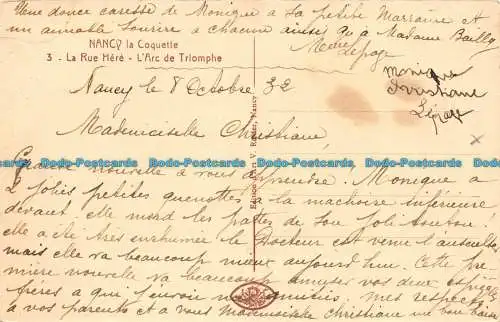 Une douce caresse de Monique à sa petite Marraine et
un aimable sourire à chacune ainsi qu'à Madame Bailly
Mme Lepage
NANCY la Coquette
3 - La Rue Héré - L'Arc de Triomphe
Monique
Christiane
Lepage
Nancy le 8 Octobre 32
Mademoiselle Christiane,
Grande nouvelle à vous apprendre! Monique a
2 jolies petites quenottes à la machoire inférieure
devant, elle mord les pattes de son joli toutou.
elle a été très enrhumée le Docteur est venu l'ausculter
mais elle va beaucoup mieux aujourd'hui. Cette pre-
mière nouvelle va beaucoup amuser vos deux petits
frères à qui j'envoie mes amitiés, mes respects
à vos parents et à vous Mademoiselle Christiane un bon baiser
Bods Postcards